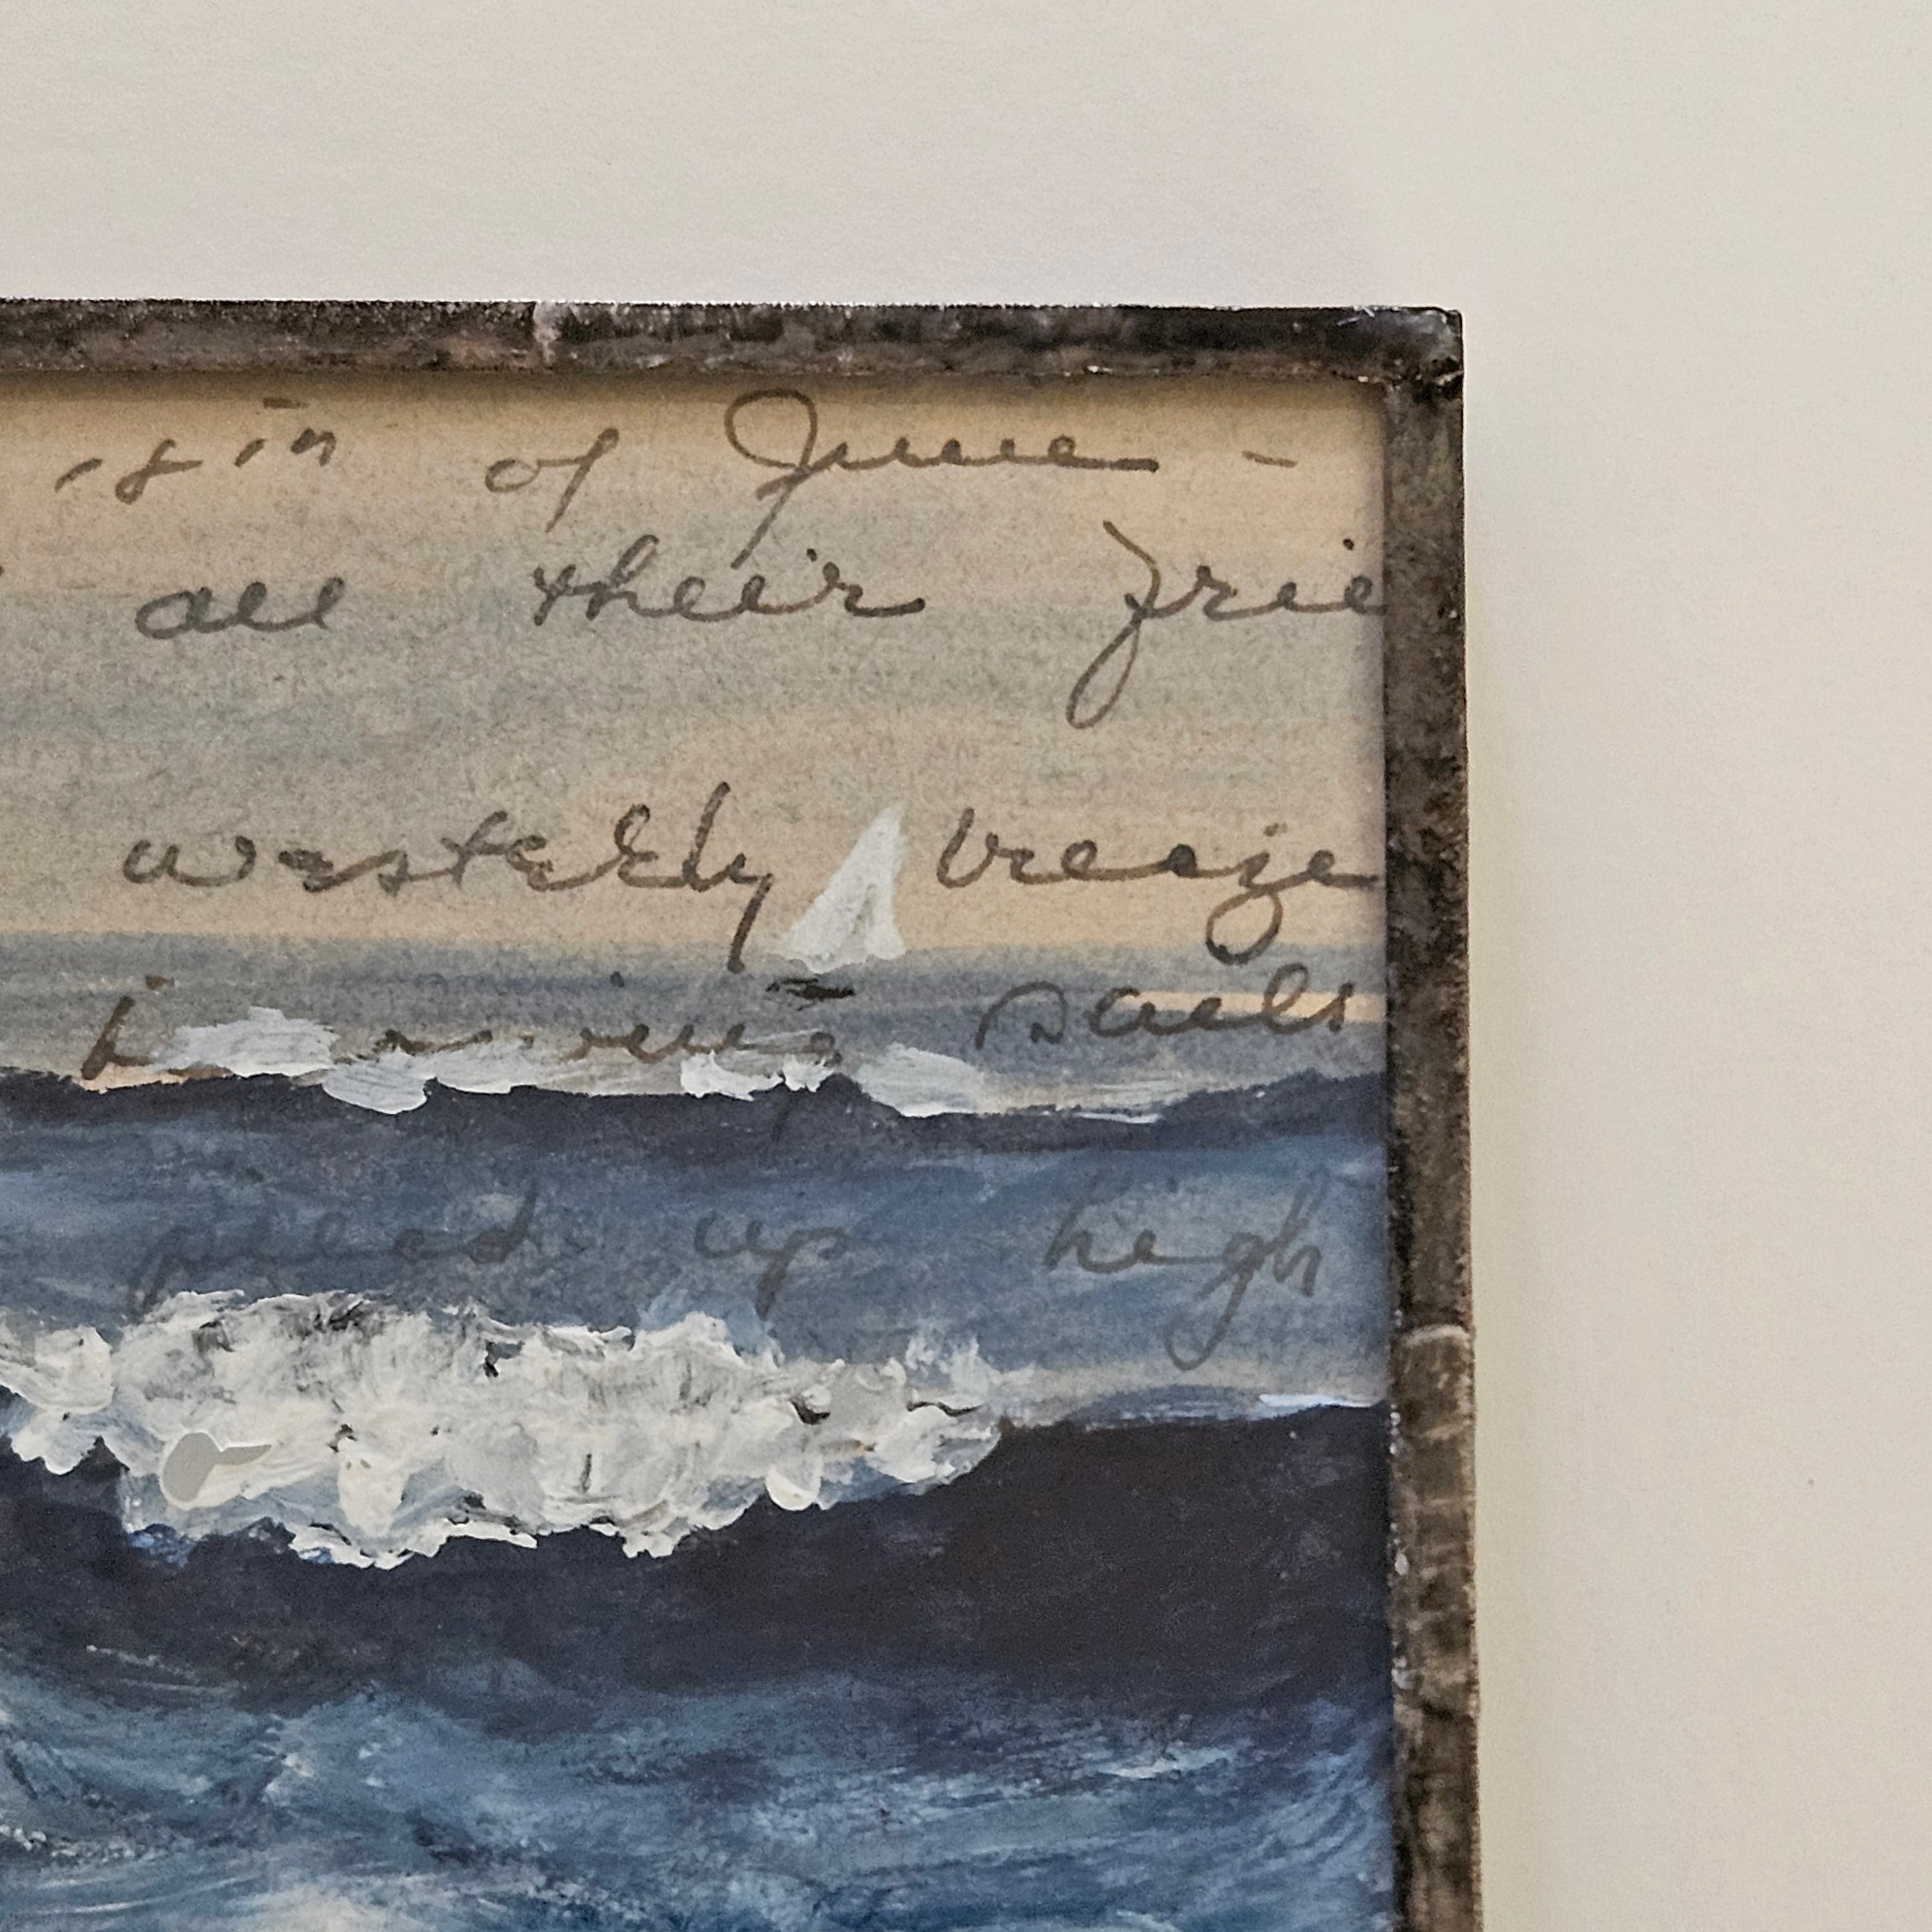 18th of June -
all their frie
westerly breeze
sails
up high